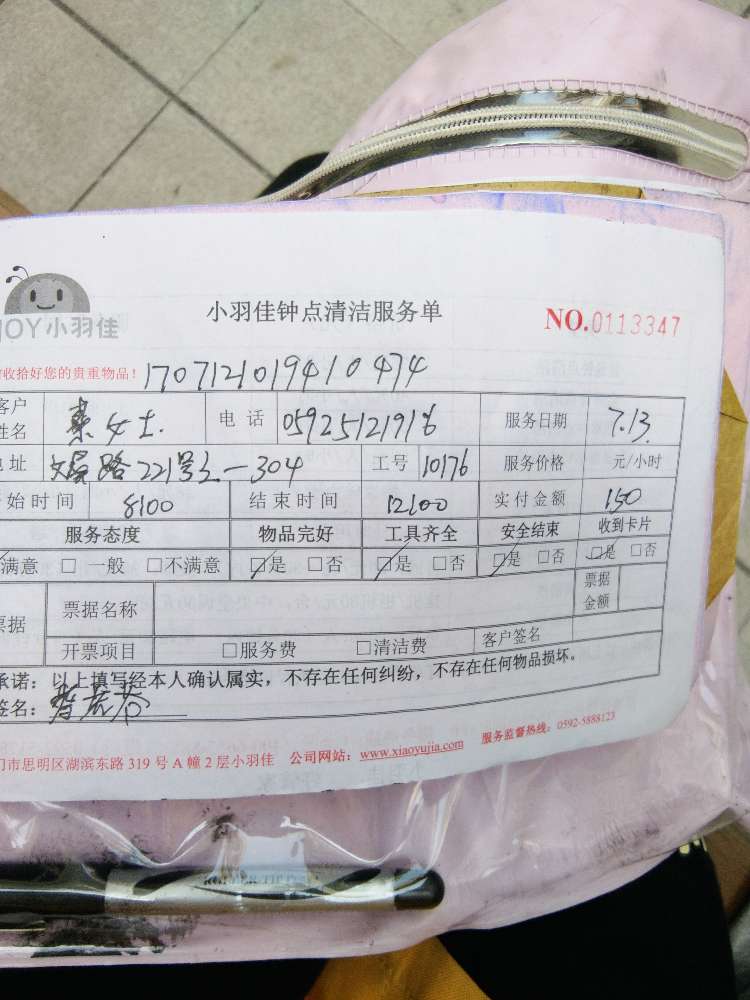 小羽佳钟点清洁服务单 NO.0113347
JOY小羽佳
收拾好您的贵重物品！ 1707121019410474
客户姓名 女士 电话 05925121916 服务日期 7.13
地址 路221号之一304 工号 10176 服务价格 元/小时
始时间 8:00 结束时间 12:00 实付金额 150
服务态度 物品完好 工具齐全 安全结束 收到卡片
满意 □ 一般 □不满意 □是 □否 □是 □否 □是 □否 □是 □否
票据 票据名称 票据金额
开票项目 □服务费 □清洁费 客户签名
承诺：以上填写经本人确认属实，不存在任何纠纷，不存在任何物品损坏。
签名：
门市思明区湖滨东路 319 号 A 幢 2 层小羽佳 公司网站：www.xiaoyujia.com 服务监督热线：0592-5888123